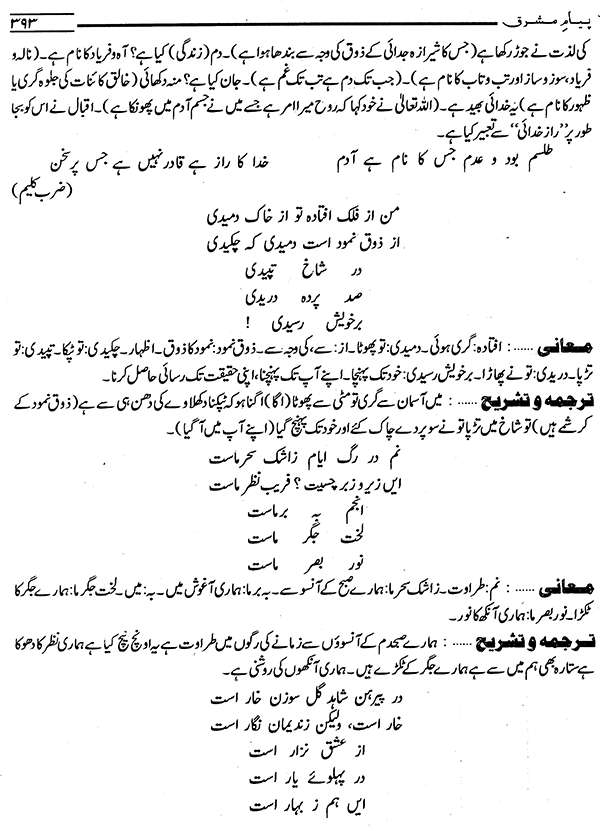 پیامِ مشرق ۳۹۳
کی لذت نے جوڑ رکھا ہے (جس کا شیرازہ جدائی کے ذوق کی وجہ سے بندھا ہوا ہے)۔ دم (زندگی) کیا ہے؟ آہ و فریاد کا نام ہے۔ (نالہ و
فریاد، سوز و ساز اور تب و تاب کا نام ہے)۔ (جب تک دم ہے تب تک غم ہے)۔ جان کیا ہے؟ منہ دکھائی (خالق کائنات کی جلوہ گری یا
ظہور کا نام ہے) یہ خدائی بھید ہے۔ (اللہ تعالیٰ نے خود کہا کہ روح میرا امر ہے جسے میں نے جسم آدم میں پھونکا ہے)۔ اقبال نے اس کو بجا
طور پر ’’راز خدائی‘‘ سے تعبیر کیا ہے۔
طلسم بود و عدم جس کا نام ہے آدم خدا کا راز ہے قادر نہیں ہے جس پر سخن
(ضرب کلیم)
من از فلک افتادہ تو از خاک دمیدی
از ذوق نمود است دمیدی کہ چکیدی
در شاخ تپیدی
صد پردہ دریدی
برخویش رسیدی !
معانی ...... : افتادہ: گری ہوئی۔ دمیدی: تو پھوٹا۔ از: سے، کی وجہ سے۔ ذوق نمود: نمود کا ذوق۔ اظہار۔ چکیدی: تو ٹپکا۔ تپیدی: تو
تڑپا۔ دریدی: تو نے پھاڑا۔ برخویش رسیدی: خود تک پہنچا۔ اپنے آپ تک پہنچنا، اپنی حقیقت تک رسائی حاصل کرنا۔
ترجمہ و تشریح ...... : میں آسمان سے گری تو مٹی سے پھوٹا (اگا) اگنا ہو کہ ٹپکنا دکھلاوے کی دھن ہی سے ہے (ذوق نمود کے
کرشمے ہیں) تو شاخ میں تڑپا تو نے سو پردے چاک کئے اور خود تک پہنچ گیا (اپنے آپ میں آ گیا)۔
نم در رگ ایام ز اشک سحر ماست
ایں زیر و زبر چیست؟ فریب نظر ماست
انجم بہ بر ماست
لخت جگر ماست
نور بصر ماست
معانی ...... : نم: طراوت۔ ز اشک سحر ما: ہمارے صبح کے آنسو سے۔ بہ بر ما: ہماری آغوش میں۔ بہ: میں۔ لخت جگر ما: ہمارے جگر کا
ٹکڑا۔ نور بصر ما: ہماری آنکھ کا نور۔
ترجمہ و تشریح ...... : ہمارے صبحدم کے آنسوؤں سے زمانے کی رگوں میں طراوت ہے یہ اونچ نیچ کیا ہے ہماری نظر کا دھوکا
ہے ستارہ بھی ہم میں سے ہے ہمارے جگر کے ٹکڑے ہیں۔ ہماری آنکھوں کی روشنی ہے۔
در پیرہن شاہد گل سوزن خار است
خار است، ولیکن ز ندیمان نگار است
از عشق نزار است
در پہلوئے یار است
ایں ہم ز بہار است